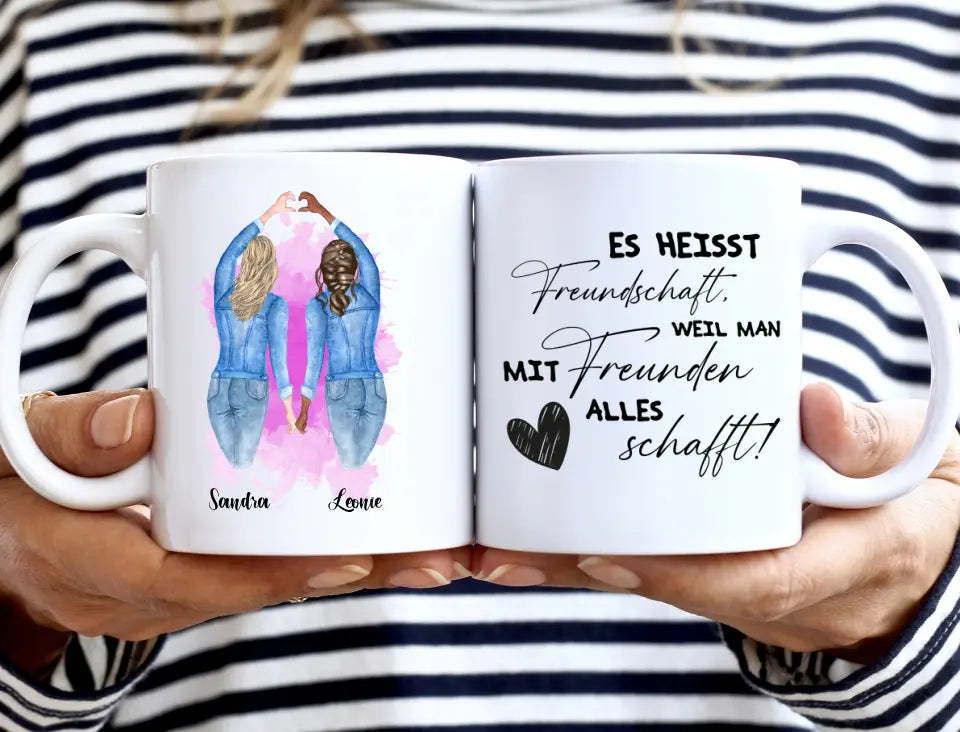 Sandra Leonie
ES HEISST
Freundschaft,
WEIL MAN
MIT Freunden
ALLES
schafft!